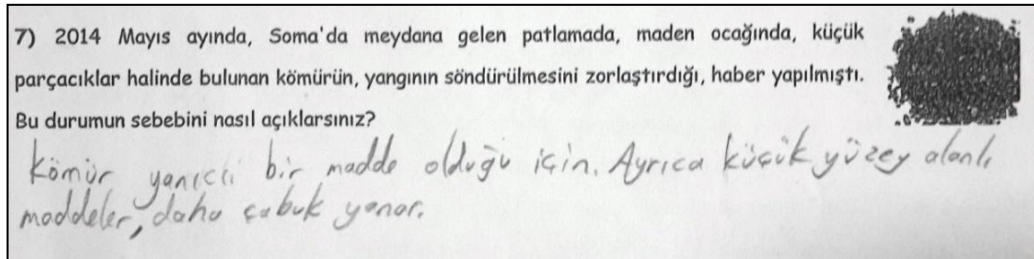 7) 2014 Mayıs ayında, Soma'da meydana gelen patlamada, maden ocağında, küçük
parçacıklar halinde bulunan kömürün, yangının söndürülmesini zorlaştırdığı, haber yapılmıştı.
Bu durumun sebebini nasıl açıklarsınız?
Kömür yanıcı bir madde olduğu için. Ayrıca küçük yüzey alanlı
maddeler, daha çabuk yanar.